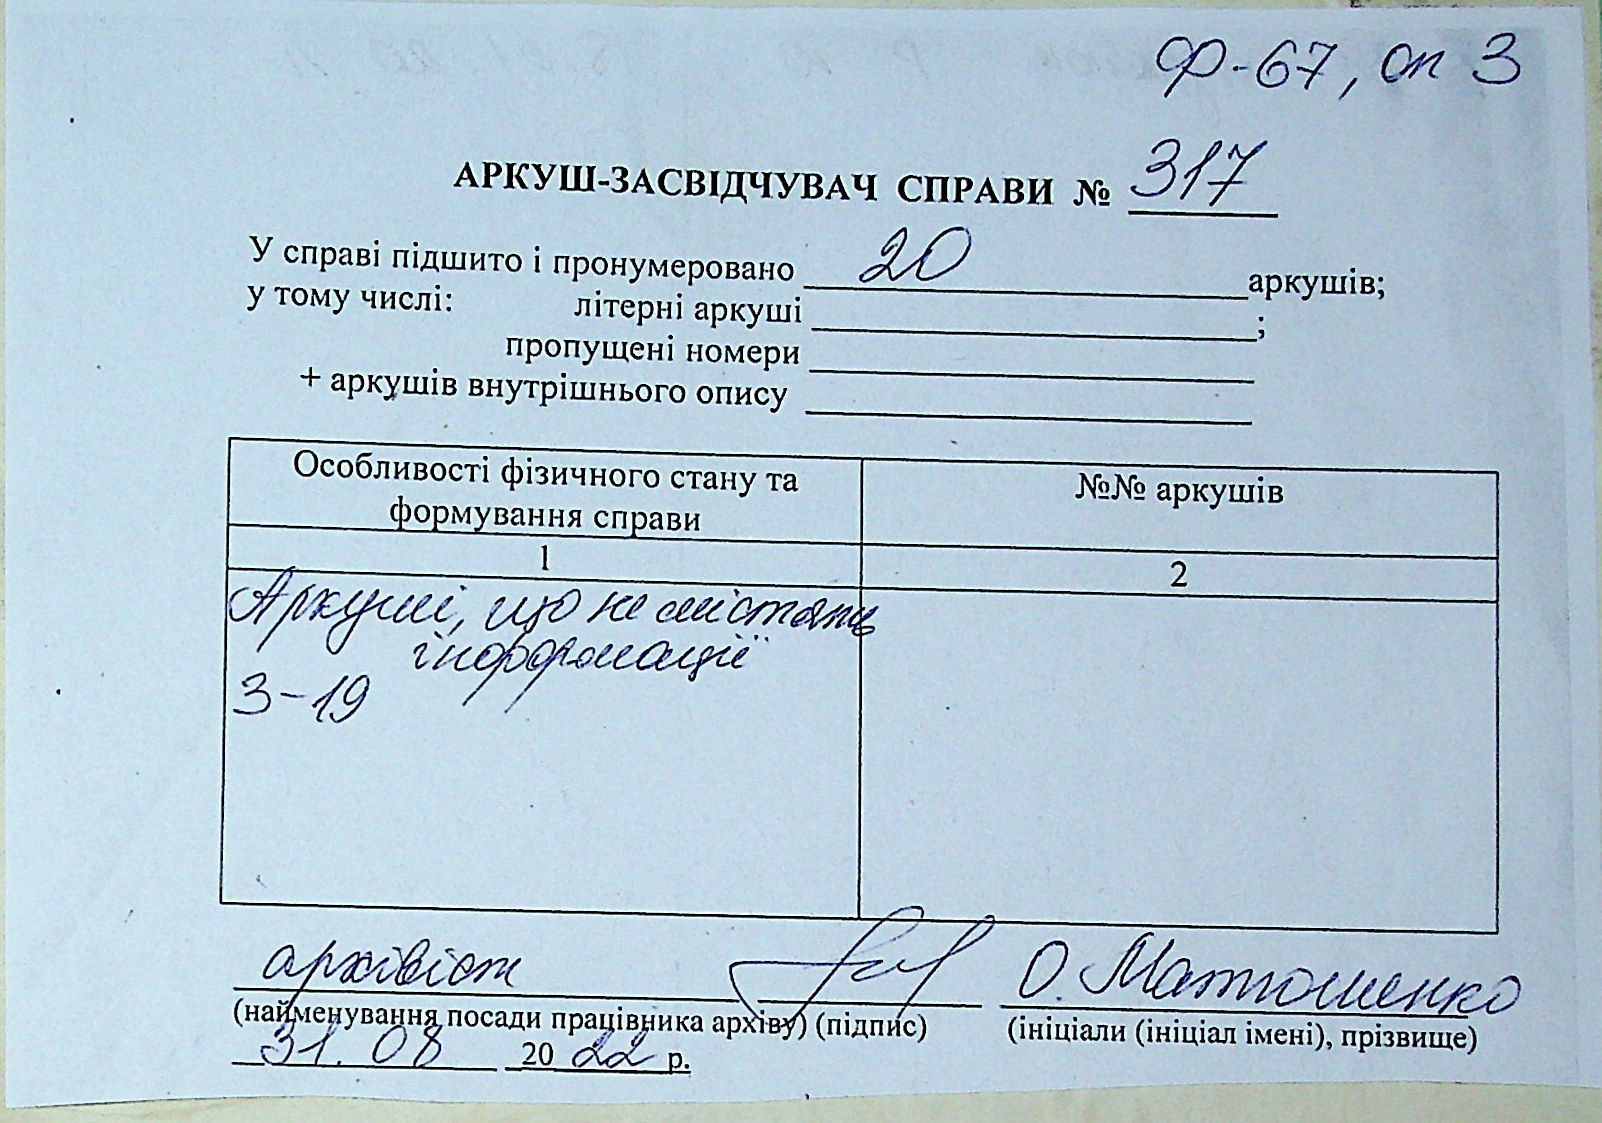 Ф-67, оп 3
АРКУШ-ЗАСВІДЧУВАЧ СПРАВИ № 317
У справі підшито і пронумеровано 20 аркушів;
у тому числі: літерні аркуші ;
пропущені номери
+ аркушів внутрішнього опису
Особливості фізичного стану та
формування справи
№№ аркушів
1
2
Аркуші, що не містять
інформації
3-19
архівіст О. Матюшенко
(найменування посади працівника архіву) (підпис) (ініціали (ініціал імені), прізвище)
31.08 2022 р.